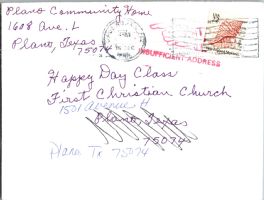 Plano Community Home
1608 Ave. L
Plano, Texas
75074
INSUFFICIENT ADDRESS
Happy Day Class
First Christian Church
1501 Avenue H
Plano, Texas
75074
Plano Tx 75074